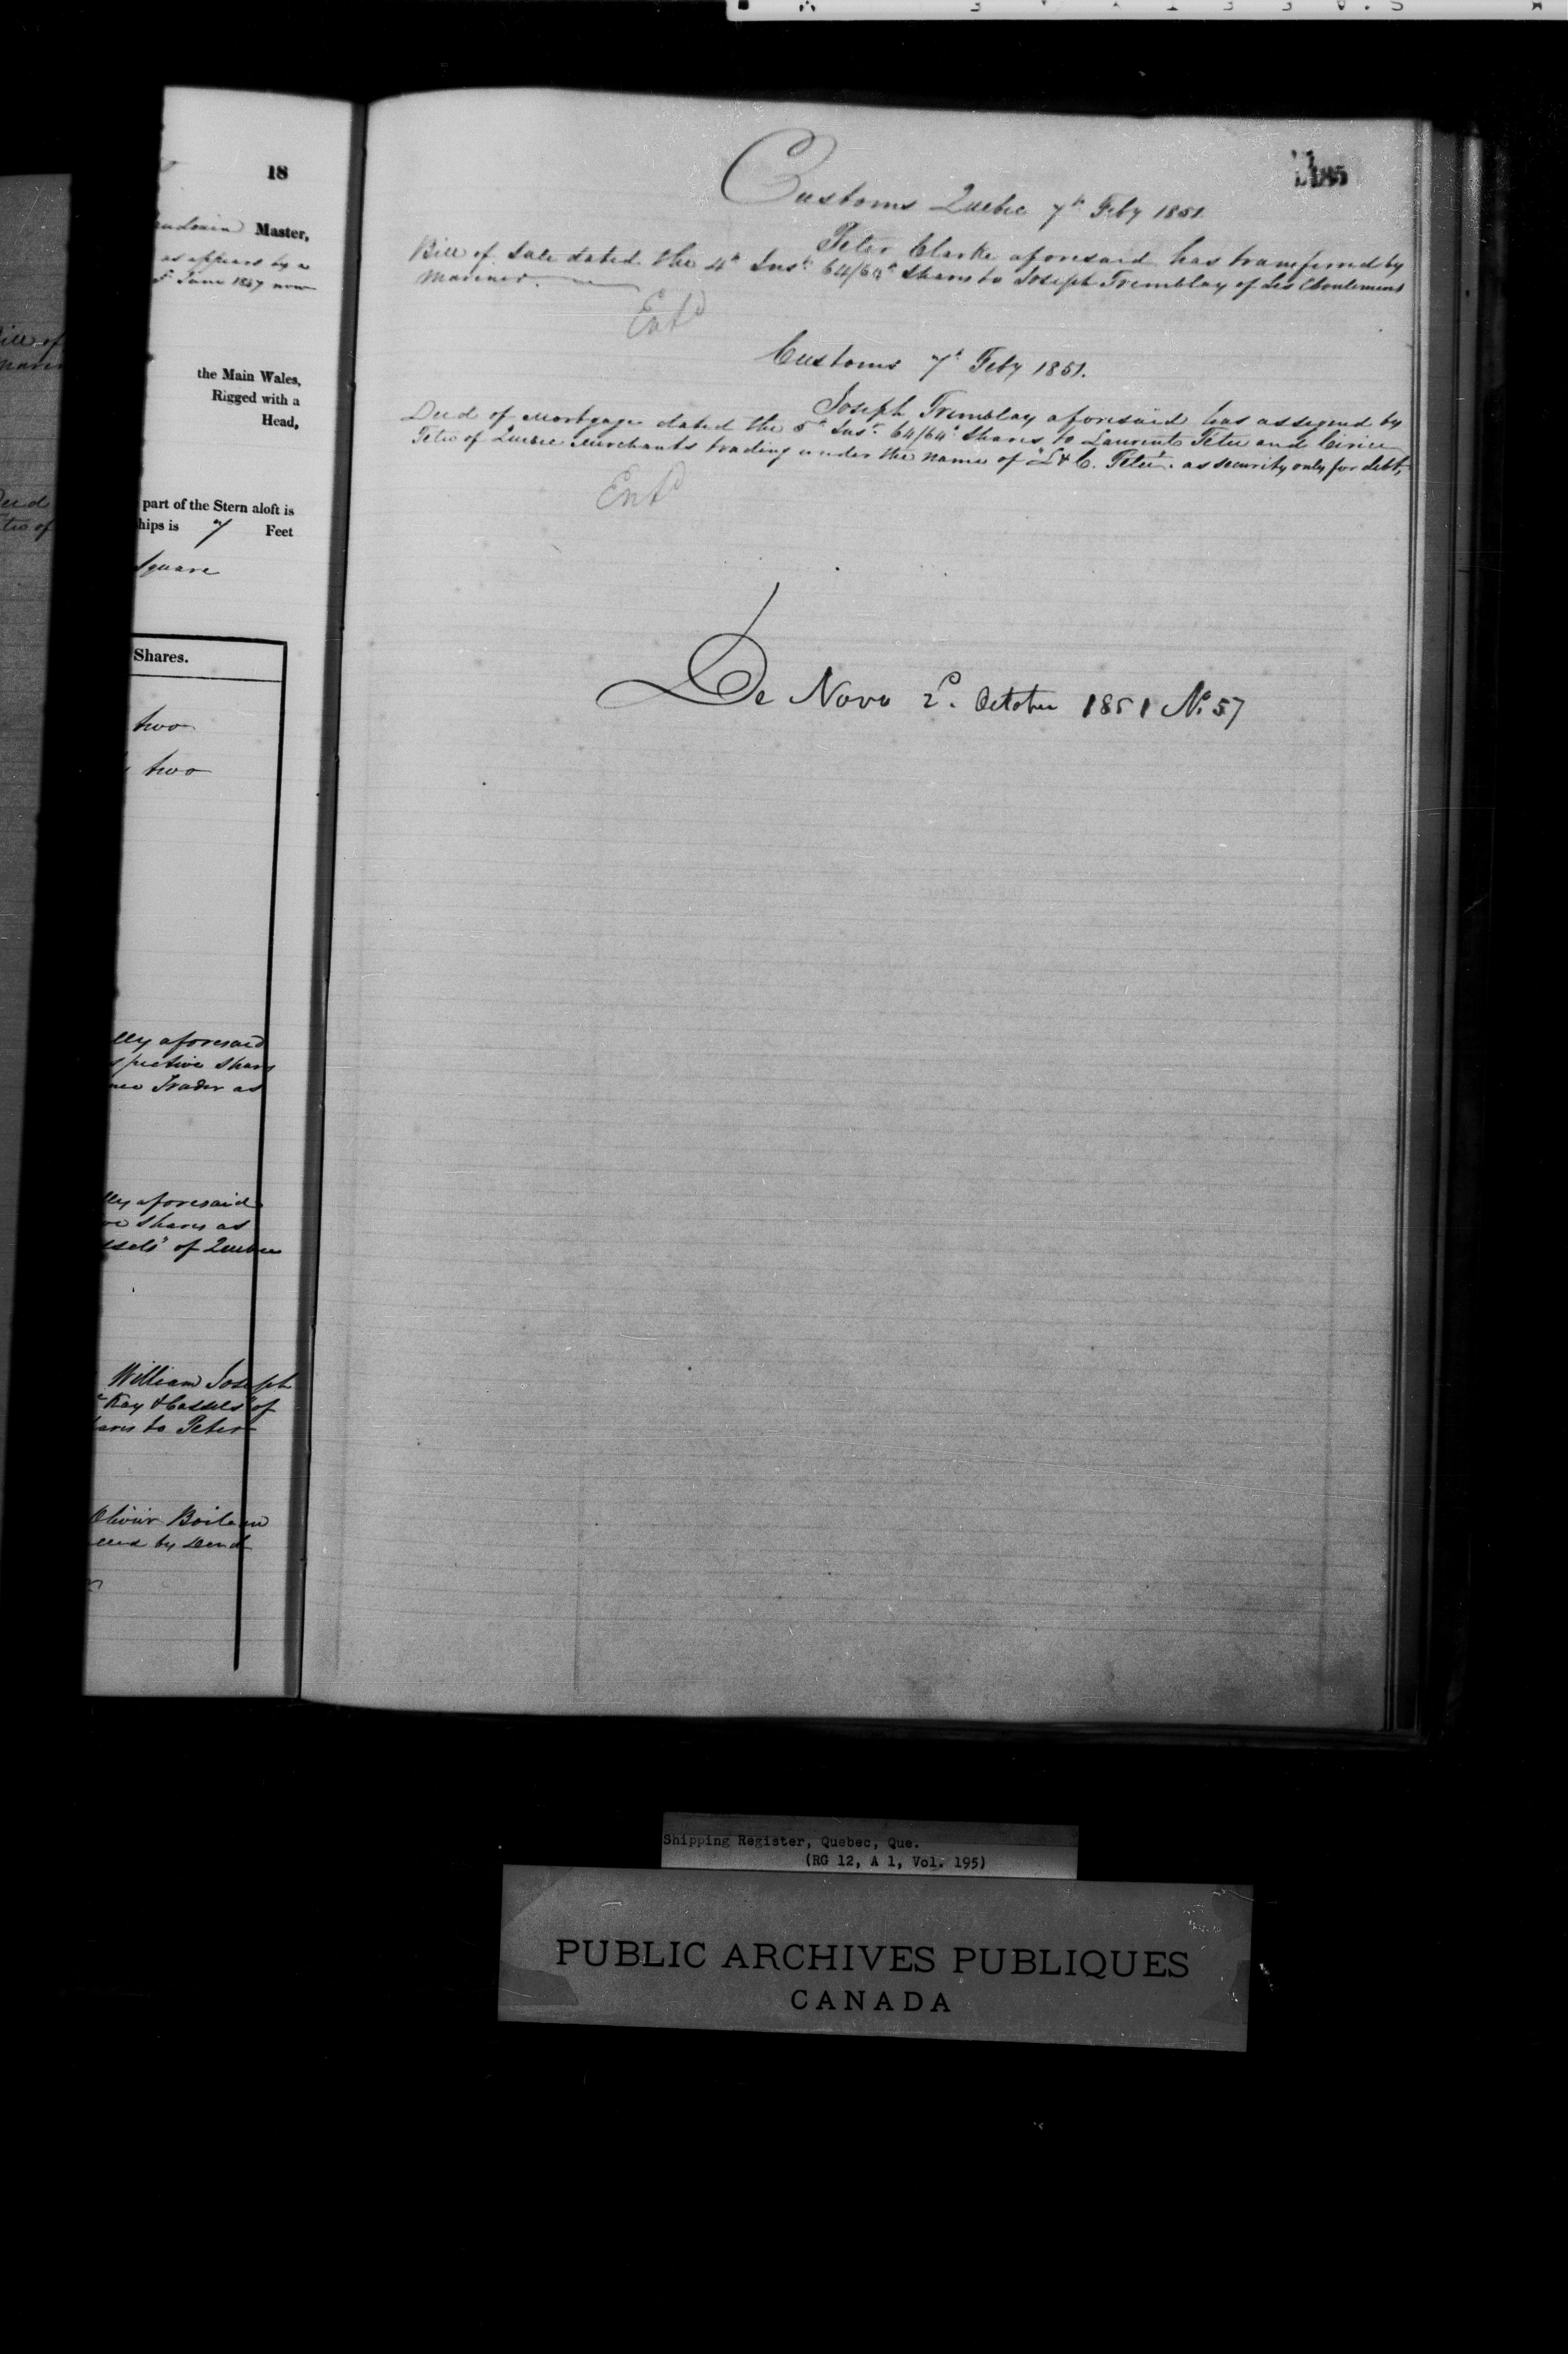 18
Master,
as appears by a
June 1847 now
the Main Wales,
Rigged with a
Head,
part of the Stern aloft is
hips is 7 Feet
Square
Shares.
two
two
lly aforesaid
spective Shares
Trader as
lly aforesaid
Shares as
of Quebec
William Joseph
Kay & Cassels of
to Peter
Olivier Boileau
by Deed
185
Customs Quebec 7th Feby 1851.
Peter Clarke aforesaid has transferred by
Bill of Sale dated the 4th Inst. 64/64th Shares to Joseph Tremblay of Les Eboulements
Mariner.
Entd
Customs 7th Feby 1851.
Joseph Tremblay aforesaid has assigned by
Deed of Mortgage dated the 5th Inst. 64/64th Shares to Laurent Tetu and Cirice
Tetu of Quebec Merchants trading under the name of "L & C. Tetu". as security only for debt,
Entd
De Novo 2d. October 1851 No. 57
Shipping Register, Quebec, Que.
(RG 12, A 1, Vol. 195)
PUBLIC ARCHIVES PUBLIQUES
CANADA